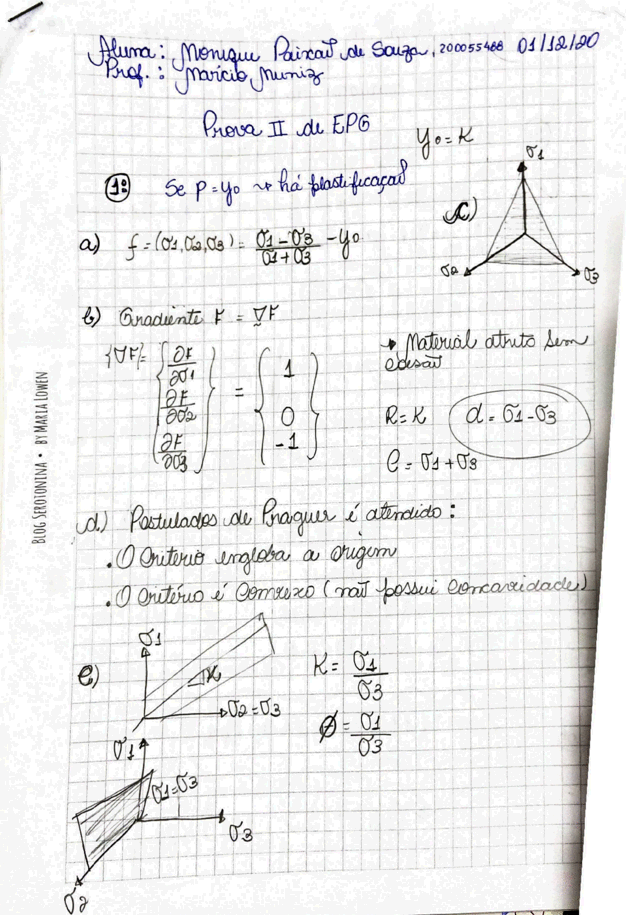 Aluna: Monique Paixão de Souza, 200055488 01/12/20
Prof.: Marcio Muniz
Prova II de EPG
y₀ = K
1ª Se P = y₀ ⇝ há plastificação
a) f = (σ1, σ2, σ3) = (σ1 - σ3)/(σ1 + σ3) - y₀
c)
σ1
σ2
σ3
b) Gradiente F = ∇F
{∇F} = {∂F/∂σ1 ∂F/∂σ2 ∂F/∂σ3} = {1 0 -1}
→ Material atrito sem
coesão
R = K
d = σ1 - σ3
C = σ1 + σ3
d.) Postulados de Praguer é atendido:
. O Criterio engloba a origem
. O Critério é Comvexo (não possui concavidade)
e)
σ1
K
σ2 = σ3
K = σ1/σ3
ø = σ1/σ3
σ1
σ1 = σ3
σ3
σ2
BLOG SEROTONINA • BY MARIA LOWEN